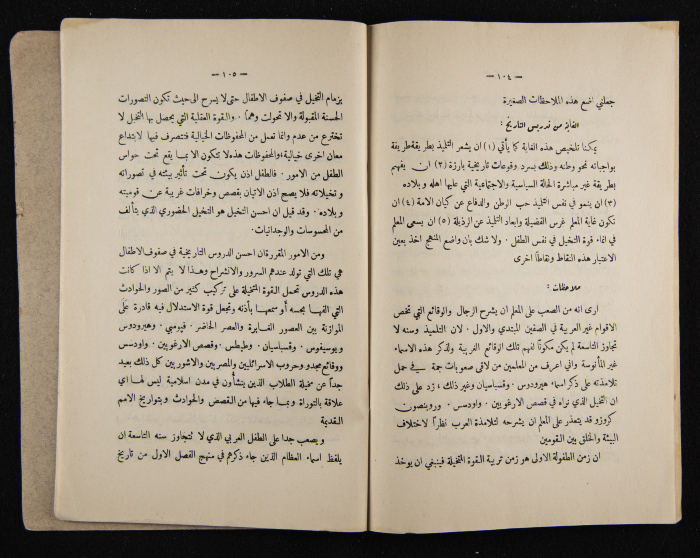 — ١٠٤ —
جعلني اضع هذه الملاحظات الصغيرة
الغاية من تدريس التاريخ :
يمكنا تلخيص هذه الغاية كما يأتي (١) ان يشعر التليذ بطريقة لطريفة
بواجباته نحو وطنه وذلك بسرد وقوعات تاريخية بارزة (٢) ان يفهم
بطريقة غير مباشرة الحالة السياسية والاجتماعية التي عليها اهله وبلاده
(٣) ان ينمو في نفس التليذ حب الوطن والدفاع عن كيان الامة (٤) ان
تكون غاية المعلم غرس الفضيلة وابعاد التليذ عن الرذيلة (٥) ان يسعى المعلم
في انماء قوة التخيل في نفس الطفل . ولا شك بان واضع المنهج اخذ بعين
الاعتبار هذه النقاط ونقاطاً اخرى
ملاحظات :
ارى انه من الصعب على المعلم ان يشرح الرجال والوقائع التي تخص
الاقوام غير العربية في الصفين المبتدي والاول . لان التلميذ وسنه لا
تتجاوز التاسعة لم يكن مكوناً لفهم تلك الوقائع الغريبة ولذكر هذه الاسماء
غير المأنوسة واني اعرف من المعلمين من لاقى صعوبات جمة في حمل
تلامذته على ذكر اسماء هيرودوس . وفسباسيان وغير ذلك ، زد على ذلك
ان التخيل الذي نراه في قصص الارغويين . واودسس . وروبنصون
كروزو قد يتعذر على المعلم ان يشرحه لتلامذة العرب نظراً لاختلاف
البيئة والخلق بين القومين
ان زمن الطفولة الاولى هو زمن تربية القوة المتخيلة فينبغي ان يوخذ
— ١٠٥ —
بزمام التخيل في صفوف الاطفال حتى لا يسرح الى حيث تكون التصورات
الحسنة المقبولة والا تحولت وهماً . والقوة العقلية التي يحصل بها التخيل لا
تخترع من عدم وانما تعمل من المحفوظات الخيالية فتتصرف فيها لابتداع
معان اخرى خيالية ، والمحفوظات هذه لا تتكون الا بما يقع تحت حواس
الطفل من الامور . فالطفل اذن يكون تحت تأثير بيئته في تصوراته
وتخيلاته فلا يصح اذن الاتيان بقصص وخرافات غريبة عن قوميته
وبلاده . وقد قيل ان احسن التخيل هو التخيل الحضوري الذي يتألف
من المحسوسات والوجدانيات .
ومن الامور المقررة ان احسن الدروس التاريخية في صفوف الاطفال
هي تلك التي تولد عندهم السرور والانشراح وهذا لا يتم الا اذا كانت
هذه الدروس تحمل القوة المتخيلة على تركيب كثير من الصور والحوادث
التي الفها بحسه أو سمعها بأذنه وتجعل قوة الاستدلال فيه قادرة على
الموازنة بين العصور الغابرة والعصر الحاضر . فيومي . وهيرودوس
ويوسيفوس . وفسباسيان . وطيطس . وقصص الارغويين . واودسس
ووقائع مجدو وحروب الاسرائليين والمصريين والاشوريين كل ذلك بعيد
جداً عن مخيلة الطلاب الذين ينشأون في مدن اسلامية ليس لها اي
علاقة بالتوراة وبما جاء فيها من القصص والحوادث وبتواريخ الامم
القديمة
ويصعب جدا على الطفل العربي الذي لا تتجاوز سنه التاسعة ان
يلفظ اسماء العظام الذين جاء ذكرهم في منهج الفصل الاول من تاريخ